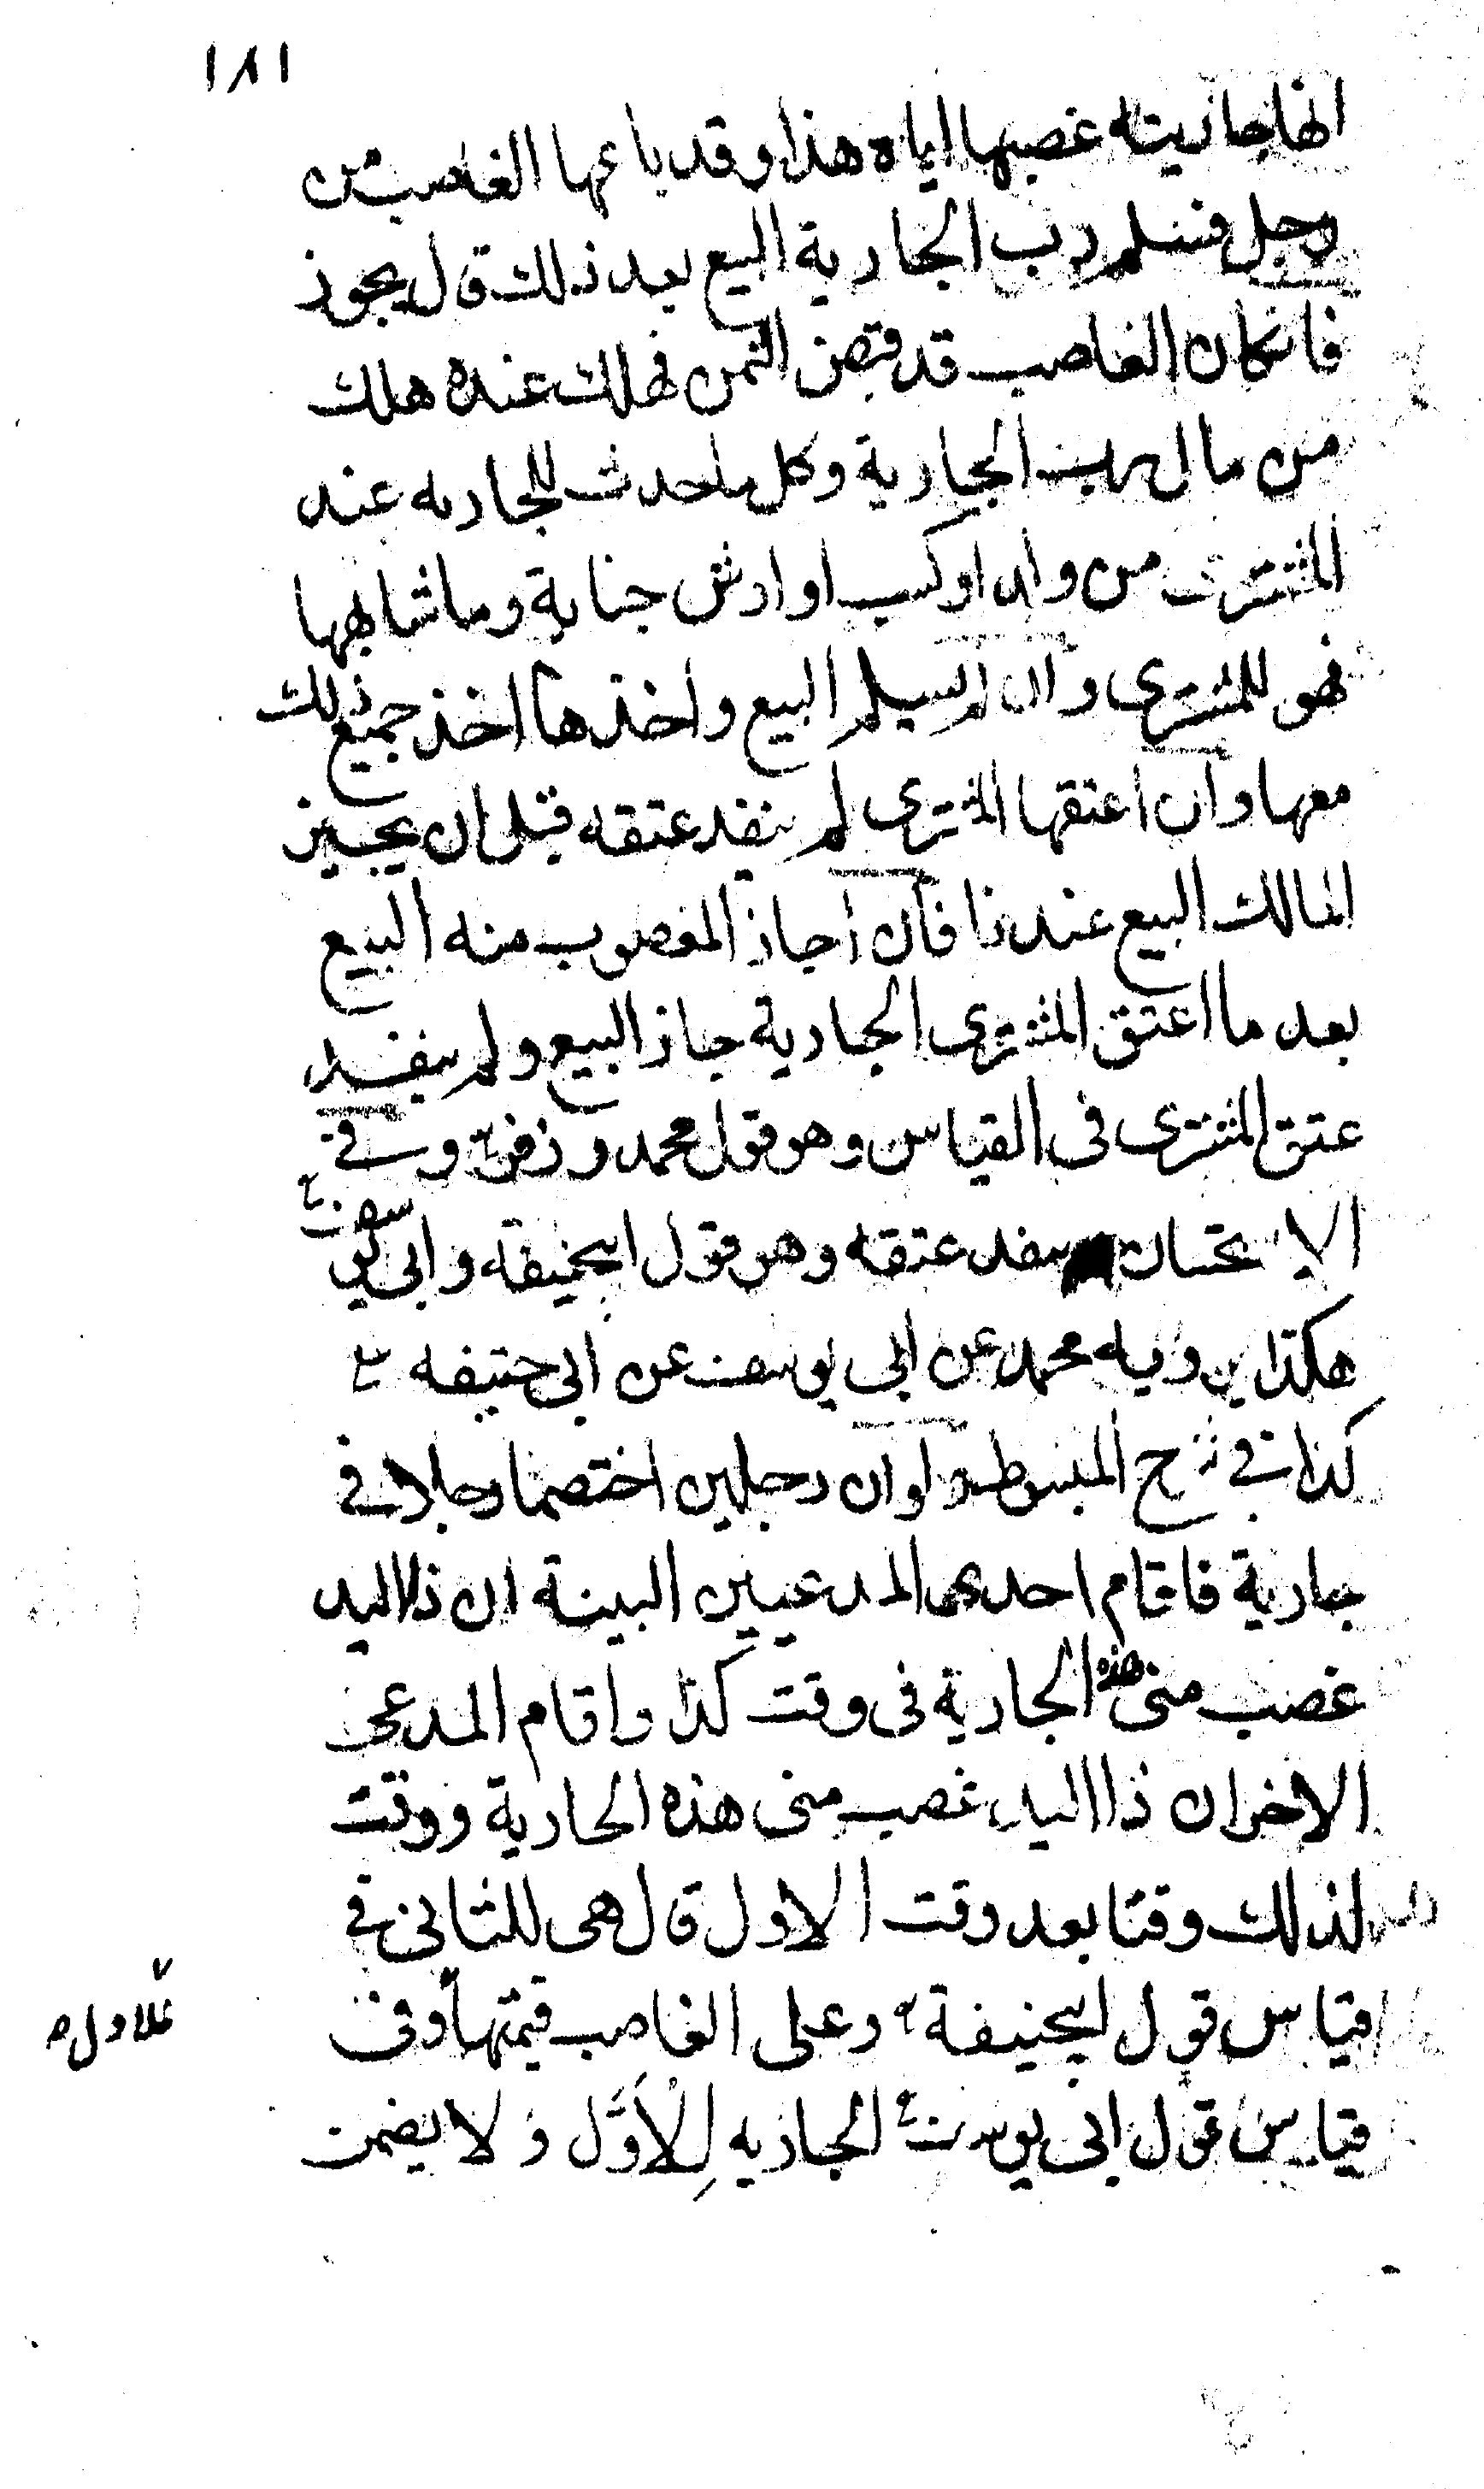 ١٨١
انها جاريته غصبها اياه هذا وقد باعها الغاصب من
رجل فسلم رب الجارية البيع بعد ذلك قال يجوز
فانكان الغاصب قد قبض الثمن فهلك عنده هلك
من مال رب الجارية وكل ما حدث للجاريه عند
المشترى من ولد اوكسب او ارش جناية وما شابهها
فهو للمشترى وان لم يسلم البيع واخذها اخذ جميع ذلك
معها وان اعتقها المشترى لم ينفد عتقه قبل ان يجيز
المالك البيع عندنا فان اجاز المغصوب منه البيع
بعد ما اعتق المشترى الجارية جاز البيع ولم ينفد
عتق المشترى فى القياس وهو قول محمد وزفر وفى
الاستحسان ينفد عتقه وهو قول ابيحنيفة وابى يوسف
هكذا يرويه محمد عن ابى يوسف عن ابى حنيفه
كذا فى شرح المبسوط ولو ان رجلين اختصما رجلا فى
جارية فاقام احدى المدعيين البينة ان ذا اليد
غصب منى هذه الجارية فى وقت كذا واقام المدعى
الاخر ان ذا اليد غصب منى هذه الجارية ووقت
لذلك وقتا بعد وقت الاول قال هى للثانى فى
قياس قول ابيحنيفة وعلى الغاصب قيمتها وفى
للاول
قياس قول ابى يوسف الجاريه لِلْأَوَّل وَلا يضمن